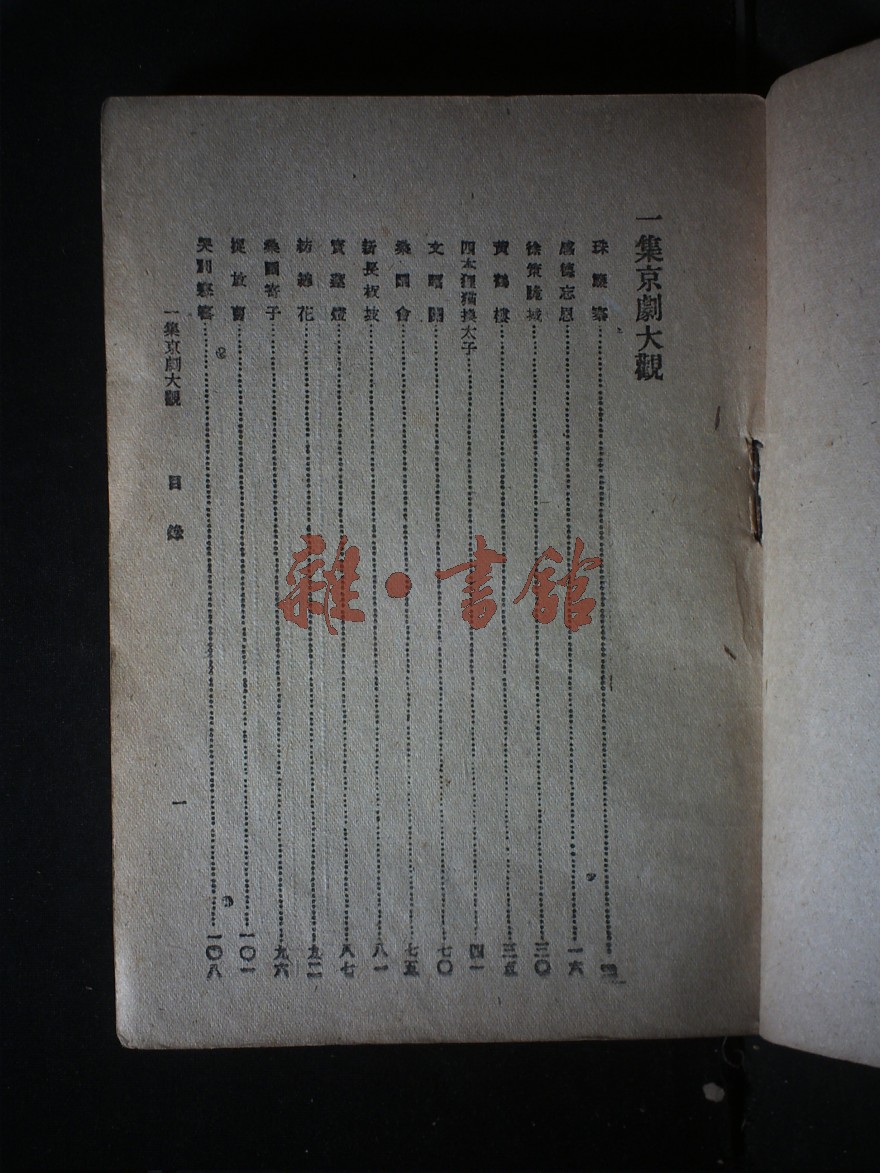 一集京劇大觀
珠簾寨
感德忘恩……一六
徐策跑城……三〇
黃鶴樓……三五
四本狸猫換太子……四一
文昭關……七〇
桑園會……七五
新長板坡……八一
寶蓮燈……八七
紡綿花……九二
桑園寄子……九六
捉放曹……一〇一
吳別窰……一〇八
一集京劇大觀 目錄 一
雜·書館